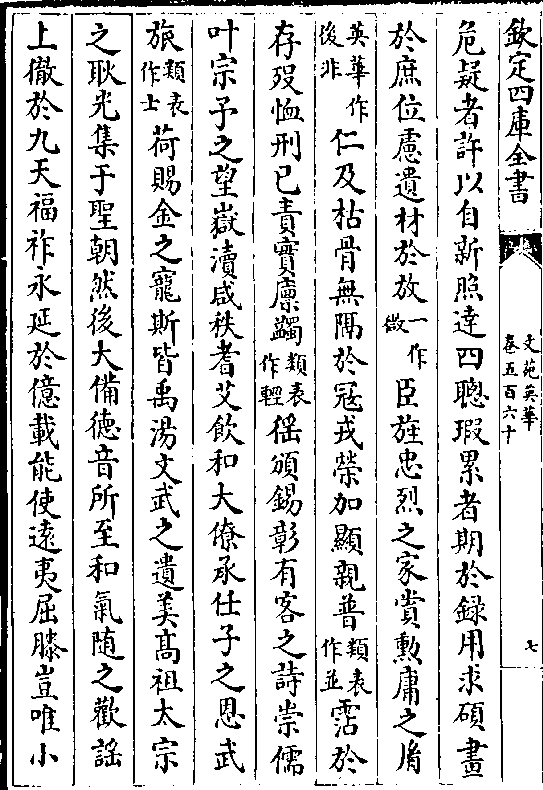 欽定四庫全書
文苑英華
卷五百六十
七
危疑者許以自新照達四聰瑕累者期於録用求碩畫
於庶位慮遺材於放一作㣲臣旌忠烈之家賞勲庸之
英華作後非仁及枯骨無隔於冦戎榮加顯親普類表作並霑於
存歿恤刑已責實廪蠲類表作輕徭頒錫彰有客之詩崇儒
叶宗予之望嶽瀆咸秩耆艾飲和大僚承仕子之恩武
旅類表作士荷賜金之寵斯皆禹湯文武之遺美髙祖太宗
之耿光集于聖朝然後大備徳音所至和氣随之歡謡
上徹於九天福祚永延於億載能使遠夷屈膝豈唯小